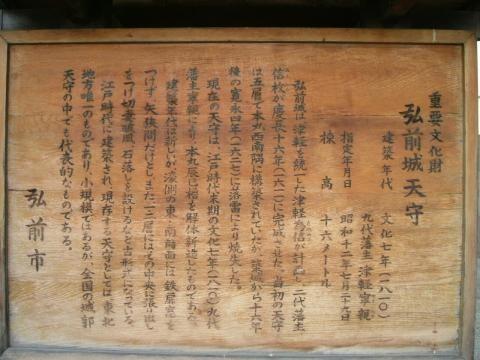 重要文化財
弘前城天守
建築年代 文化七年(一八一〇)
九代藩主 津軽寧親
指定年月日 昭和十二年七月二十九日
棟高 十六メートル
弘前城は、津軽を統一した津軽為信が計画し、二代藩主
信枚が慶長十六年(一六一一)に完成させた。当初の天守
は五層で本丸西南隅に構築されていたが、築城から十六年
後の寛永四年(一六二七)には落雷により焼失した。
現在の天守は、江戸時代末期の文化七年(一八一〇)九代
藩主寧親により、本丸辰巳櫓を解体新造したものである。
建築年代は新しいが、濠側の東・南師面には鉄扉窓を
つけず、矢狭間だけとし、また一・二層にはその中央に張り出し
をつけ切妻破風、石落しを設けるなど古形式になっている。
江戸時代に建築され、現存する天守としては、東北
地方唯一のものであり、小規模ではあるが、全国の城郭
天守の中でも代表的なものである。
弘前市